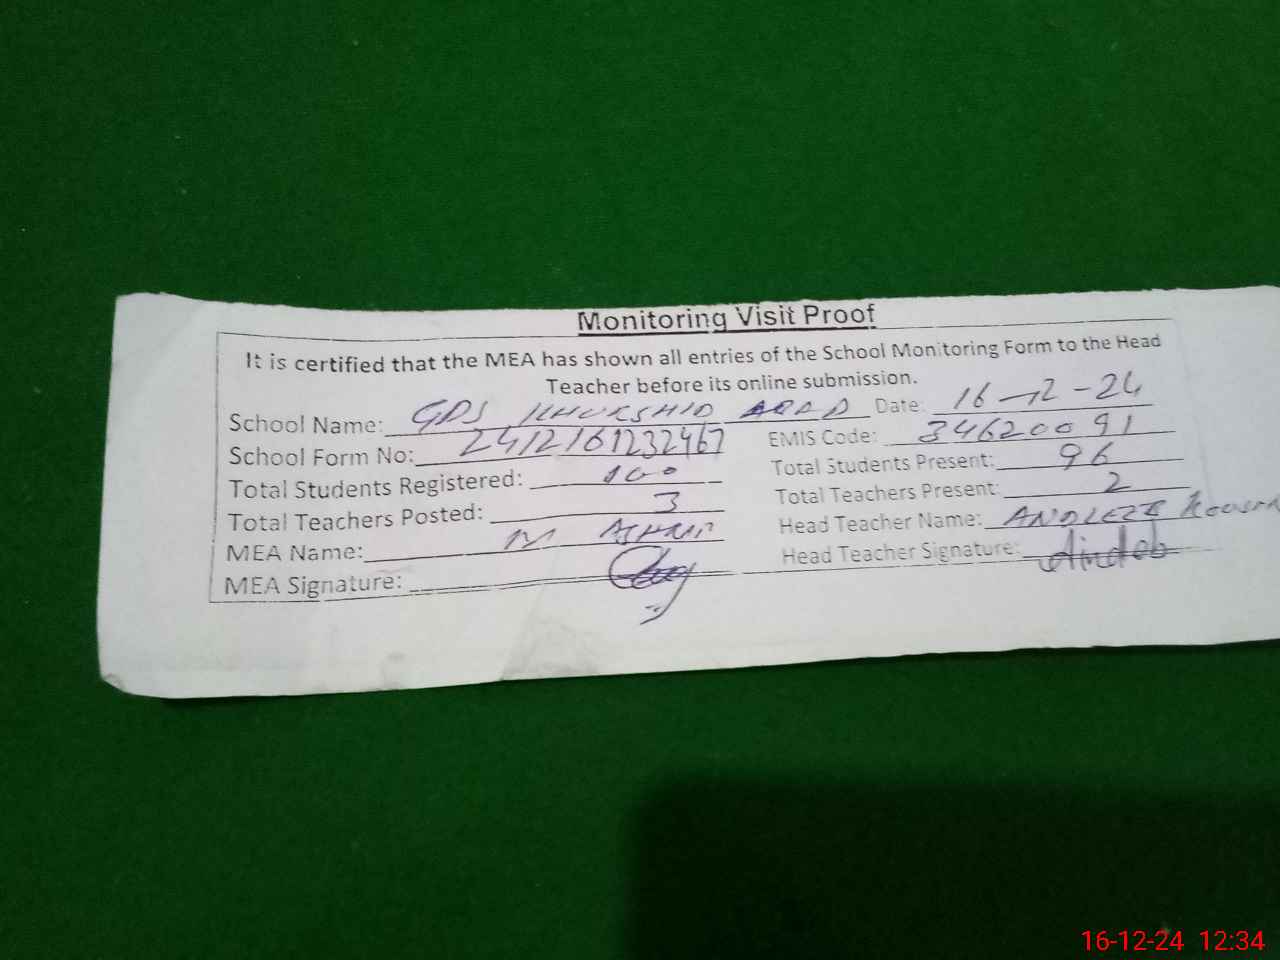 Monitoring Visit Proof
It is certified that the MEA has shown all entries of the School Monitoring Form to the Head
Teacher before its online submission.
School Name: GPS KHURSHID ABAD Date: 16-12-24
School Form No: 2412161232467 EMIS Code: 34620091
Total Students Registered: 100 Total Students Present: 96
Total Teachers Posted: 3 Total Teachers Present: 2
MEA Name: M ASHRAF Head Teacher Name:
MEA Signature: Head Teacher Signature:
16-12-24 12:34